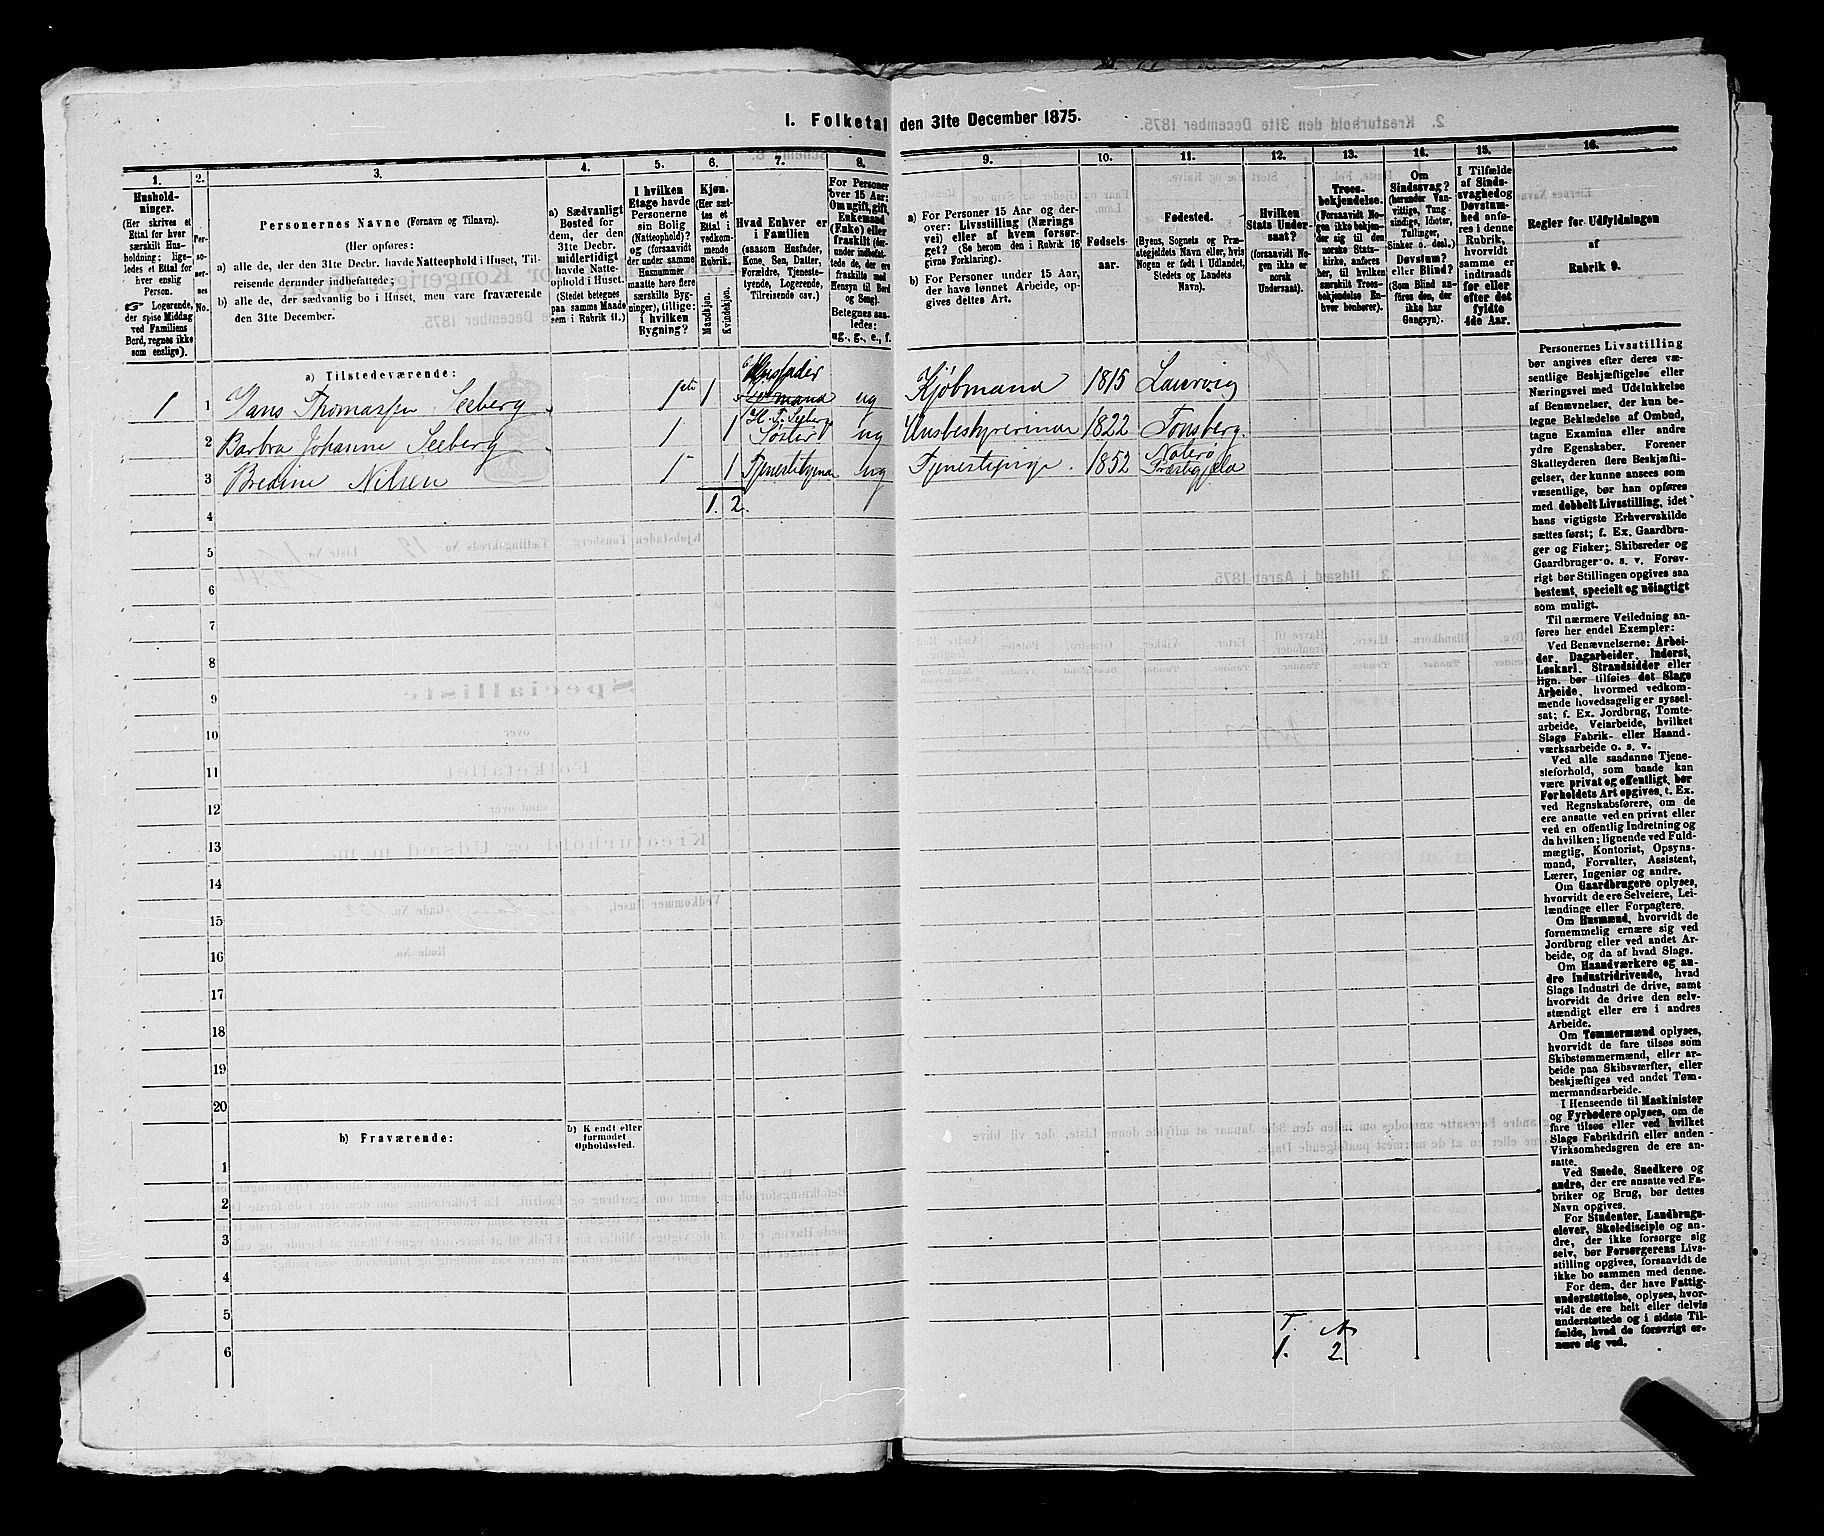 I. Folketal den 31te December 1875.
1.
2.
3.
4.
5.
6.
7.
8.
9.
10.
11.
12.
13.
14.
15.
16.
Hushold-
ninger.
(Her skrives et
Ettal for hver
særskilt Hus-
holdning; lige-
ledes et Ettal for
hver enslig
Person.
Logerende,
der spise Middag
ved Familiens
Bord, regnes ikke
som enslige).
Per-
so-
ner-
nes
No.
Personernes Navne (Fornavn og Tilnavn).
(Her opføres:
a) alle de, der den 31te Decbr. havde Natteophold i Huset, Til-
reisende derunder indbefattede;
b) alle de, der sædvanlig bo i Huset, men vare fraværende
den 31te December.
a) Sædvanligt
Bosted for
dem, der den
31te Decbr.
midlertidigt
havde Natte-
ophold i Huset.
(Stedet betegnes
paa samme Maade
som i Rubrik 11.)
I hvilken
Etage havde
Personerne
sin Bolig
(Natteophold)?
og (forsaavidt
der under samme
Husnummer
maatte høre flere
særskilte Byg-
ninger), tillige:
i hvilken
Bygning?
Kjøn.
(Her sæt-
tes et
Ettal i
vedkom-
mende
Rubrik.
Mandkjøn.
Kvindekjøn.
Hvad Enhver er
i Familien
(saasom Husfader,
Kone, Søn, Datter,
Forældre, Tjeneste-
tyende, Logerende,
Tilreisende osv.)
For Personer
over 15 Aar:
Om ugift, gift,
Enkemand
(Enke) eller
fraskilt (der-
under indbefat-
tede de, der ere
fraskilte med
Hensyn til Bord
og Seng).
Betegnes saa-
ledes:
ug., g., e., f.
a) For Personer 15 Aar og der-
over: Livsstilling (Nærings
vei) eller af hvem forsør-
get? (Se herom den i Rubrik 16
givne Forklaring).
b) For Personer under 15 Aar,
der have lønnet Arbeide, op-
gives dettes Art.
Fødsels-
aar.
Fødested.
(Byens, Sognets og Præ-
stegjeldets Navn eller, hvis
Nogen er født i Udlandet,
Stedets og Landets
Navn).
Hvilken
Stats Under-
saat?
(forsaavidt No-
gen ikke er
norsk
Undersaat).
Troes-
bekjendelse.
(Forsaavidt No-
gen ikke bekjen-
der sig til den
norske Stats-
kirke, anføres
her, til hvilken
særskilt Troes-
bekjendelse En-
hver henhører).
Om
Sindssvag?
(herunder Van-
vittige, Tung-
sindige, Idioter,
Tullinger,
Sinker o. desl.)
Døvstum?
eller Blind?
(Som Blind an-
føres den, der
ikke har
Gangsyn).
I Tilfælde
af Sinds-
svaghed og
Døvstum-
hed anfø-
res i denne
Rubrik,
hvorvidt
samme er
indtraadt
før eller
efter det
fyldte
4de Aar.
Regler for Udfyldningen
af
Rubrik 9.
a) Tilstedeværende:
1 1 Hans Thomassen Seeberg 1ste 1 Husfader ug Kjøbmand 1815 Laurvig
2 Barbra Johanne Seeberg 1 1 H. T. Seeberg Søster ug Husbestyrerinde 1822 Tønsberg.
3 Bredine Nilsen 1 1 ug Tjenestepige. 1852 Nøterø Præstegjeld
1. 2.
4
5
6
7
8
9
10
11
12
13
14
15
16
17
18
19
20
b) Fraværende:
b) Kjendt eller
formodet
Opholdssted.
1
2
3
4
5
6
T.
1. 2
Personernes Livsstilling
bør angives efter deres væ-
sentlige Beskjæftigelse eller
Næringsvei med Udelukkelse
af Benævnelser, der kun be-
tegne Beklædelse af Ombud,
tagne Examina eller andre
ydre Egenskaber. Forener
Skatteyderen flere Beskjæfti-
gelser, der kunne ansees som
væsentlige, bør han opføres
med dobbelt Livsstilling, idet
hans vigtigste Erhvervskilde
sættes først; f. Ex. Gaardbru-
ger og Fisker; Skibsreder og
Gaardbruger o. s. v. Forøv-
rigt bør Stillingen opgives saa
bestemt, specielt og nøiagtigt
som muligt.
Til nærmere Veiledning an-
føres her endel Exempler:
Ved Benævnelserne: Arbei-
der, Dagarbeider, Inderst,
Løskarl, Strandsidder eller
lign. bør tilføies det Slags
Arbeide, hvormed vedkom-
mende hovedsagelig er syssel-
sat; f. Ex. Jordbrug, Tomte-
arbeide, Veiarbeide, hvilket
Slags Fabrik- eller Haand-
værksarbeide o. s. v.
Ved alle saadanne Tjene-
steforhold, som baade kan
være privat og offentligt, bør
Forholdets Art opgives, t. Ex.
ved Regnskabsførere, om de
ere ansatte ved en privat eller
ved en offentlig Indretning og
da hvilken; lignende ved Fuld-
mægtig, Kontorist, Opsyns-
mand, Forvalter, Assistent,
Lærer, Ingeniør og andre.
Om Gaardbrugere oplyses,
hvorvidt de ere Selveiere, Lei-
lændinge eller Forpagtere.
Om Husmænd, hvorvidt de
fornemmelig ernære sig ved
Jordbrug eller ved andet Ar-
beide, og da af hvad Slags.
Om Haandværkere og an-
dre Industridrivende, hvad
Slags Industri de drive, samt
hvorvidt de drive den selv-
stændigt eller ere i andres
Arbeide.
Om Tømmermænd oplyses,
hvorvidt de fare tilsøs som
Skibstømmermænd, eller ar-
beide paa Skibsværfter, eller
beskjæftiges ved andet Tøm-
mermandsarbeide.
I Henseende til Maskinister
og Fyrbødere oplyses, om de
fare tilsøs eller ved hvilket
Slags Fabrikdrift eller anden
Virksomhedsgren de ere an-
satte.
Ved Smede, Snedkere og
andre, der ere ansatte ved Fa-
briker og Brug, bør dettes
Navn opgives.
For Studenter, Landbrugs-
elever, Skoledisciple og an-
dre, der ikke forsørge sig
selv, bør Forsørgerens Livs-
stilling opgives, forsaavidt de
ikke bo sammen med denne.
For dem, der have Fattig-
understøttelse, oplyses, hvor-
vidt de ere helt eller delvis
understøttede og i sidste Til-
fælde, hvad de forøvrigt er-
nære sig ved.